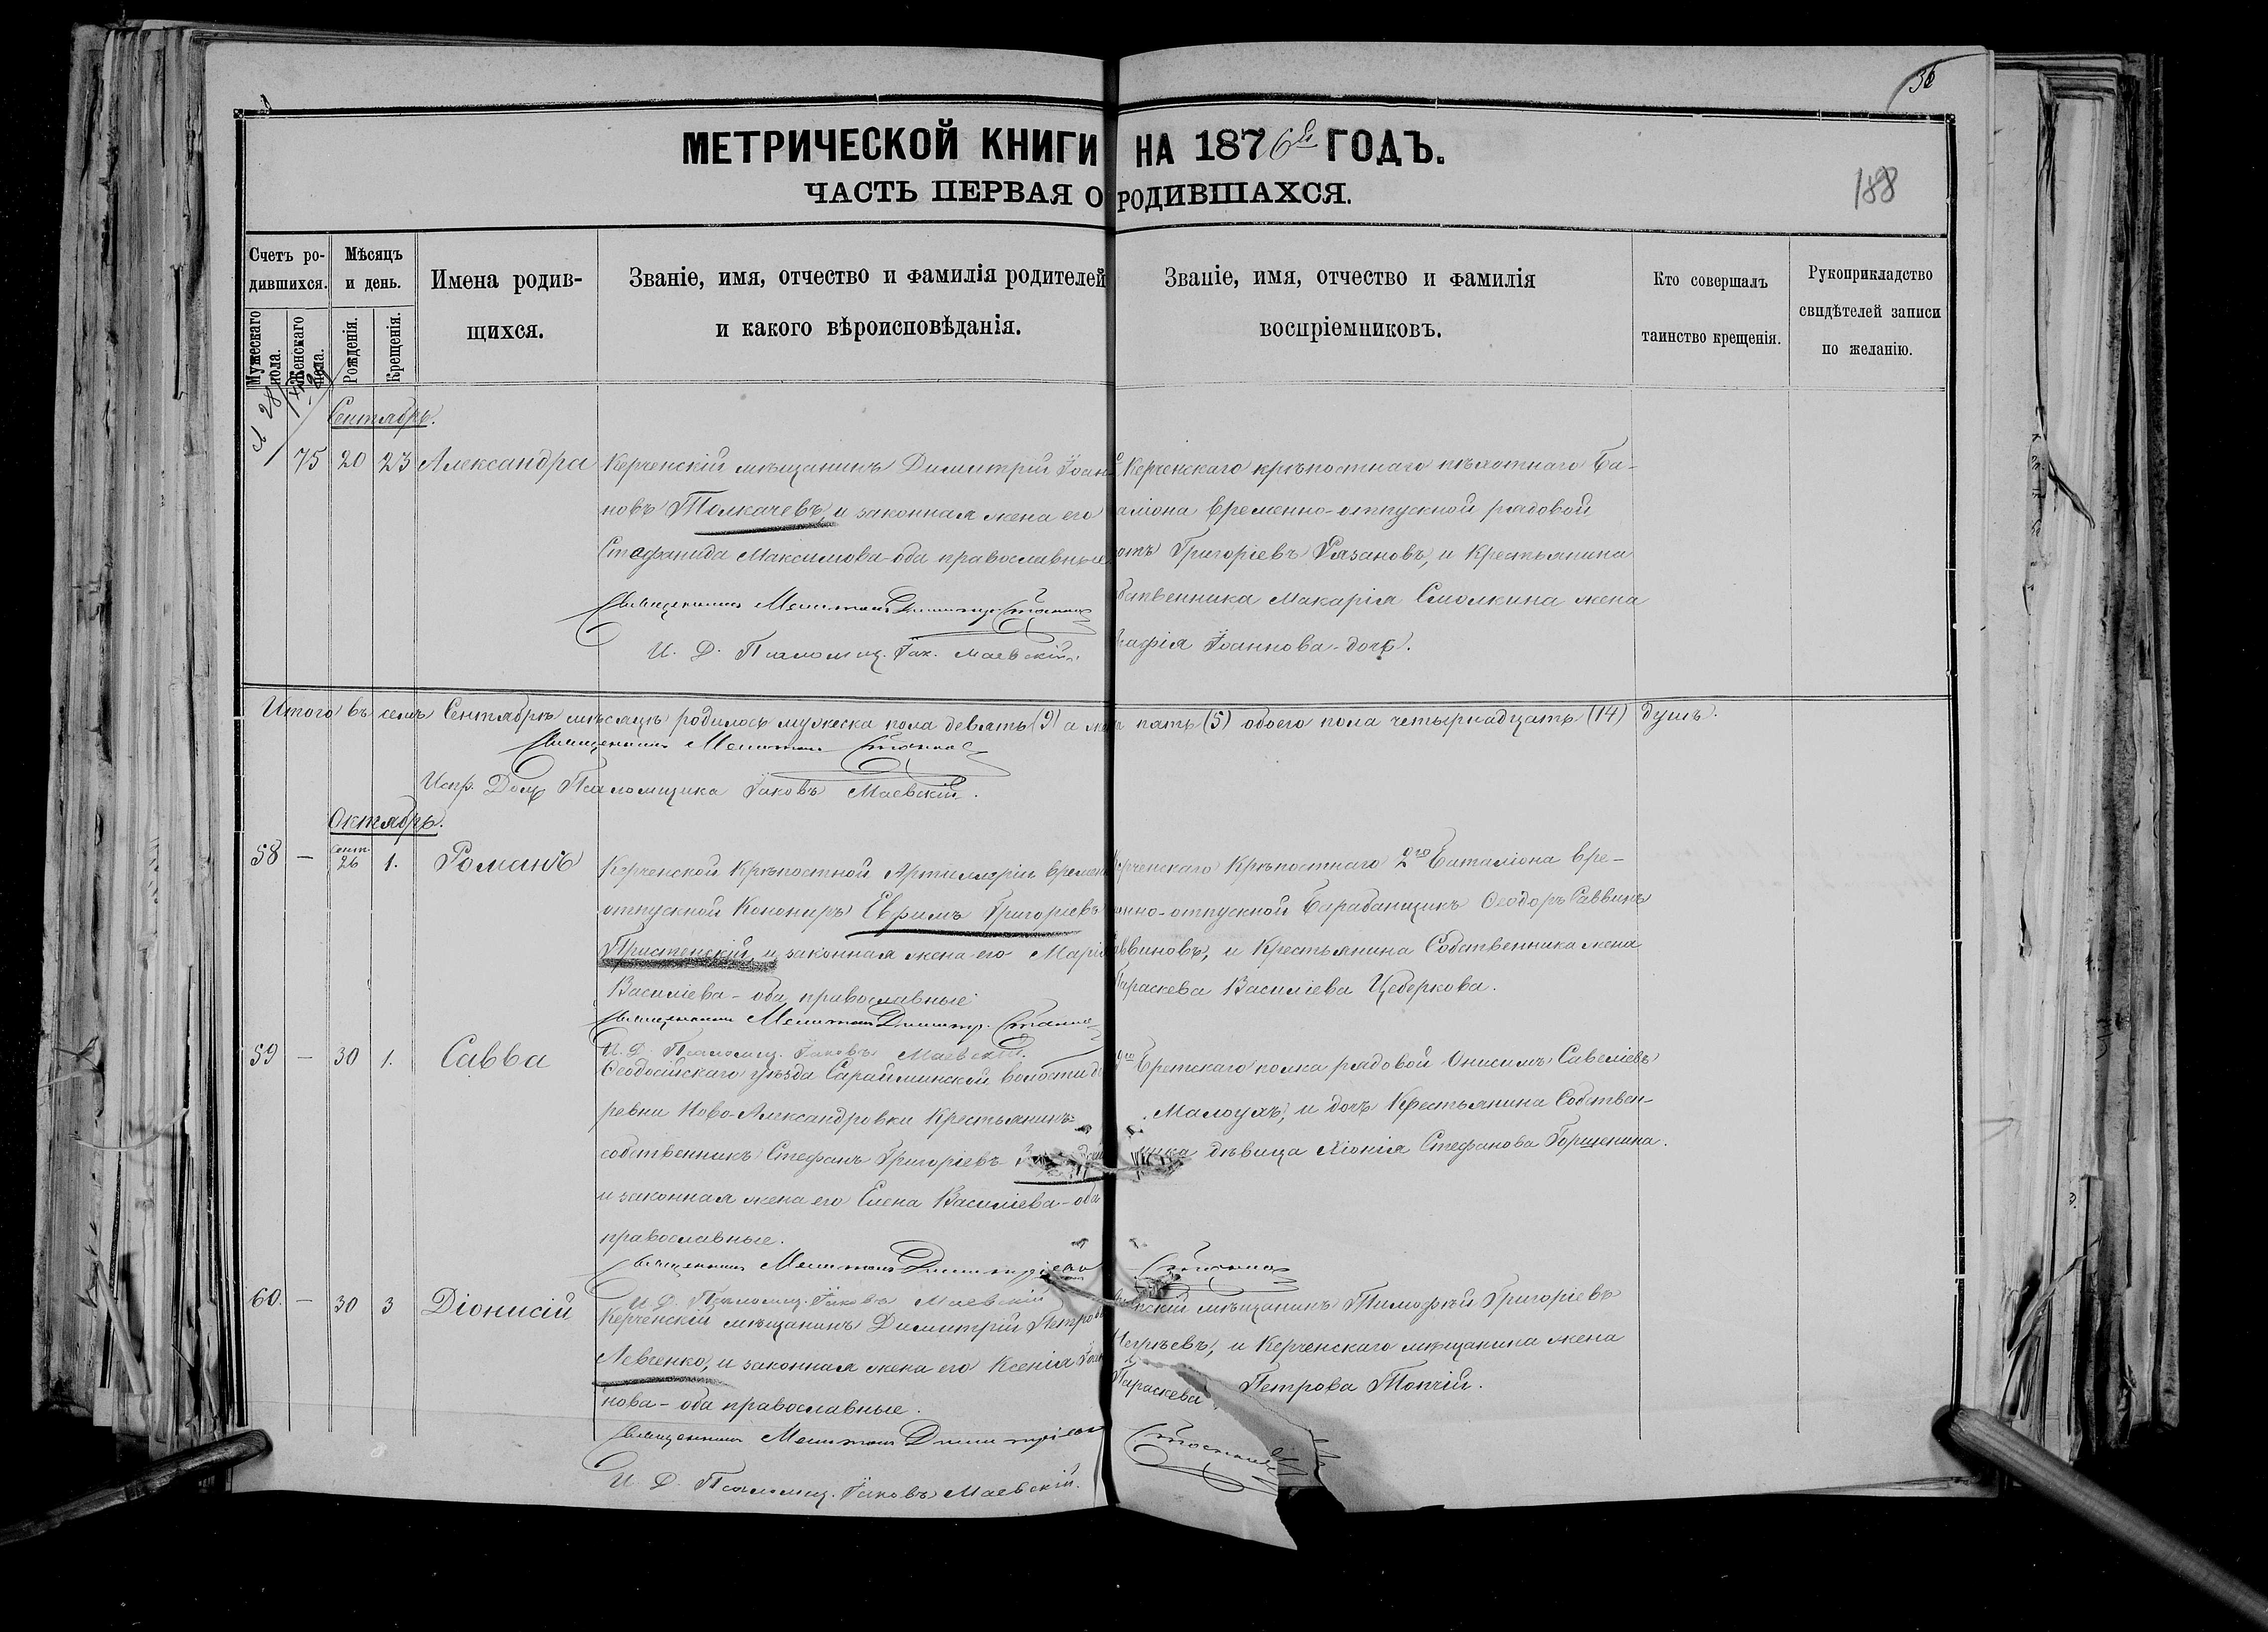 36
МЕТРИЧЕСКОЙ КНИГИ НА 1876й ГОДЪ.
ЧАСТЬ ПЕРВАЯ О РОДИВШАХСЯ.
188
Счетъ ро-
дившихся.
Мужескаго пола.
Женскаго пола.
Мѣсяцъ
и день.
Рожденія.
Крещенія.
Имена родив-
щихся.
Званіе, имя, отчество и фамилія родителей
и какого вѣроисповѣданія.
Званіе, имя, отчество и фамилія
воспріемниковъ.
Кто совершалъ
таинство крещенія.
Рукоприкладство
свидѣтелей записи
по желанію.
Сентябрь.
75 20 23 Александра
Керченскій мѣщанинъ Димитрій Іоан-
новъ Толкачевъ, и законная жена его
Стефанида Максимова - оба православные
Священникъ
И. Д. Псаломщ. Іак. Маевскій.
Керченскаго крѣпостнаго пѣхотнаго Ба-
аліона временно-отпускной рядовой
отъ Григоріевъ Рязановъ, и Крестьянина
бственника Макарія Смолкина жена
афія Іоаннова-дочь.
Итого въ семъ Сентябрѣ мѣсяцѣ родилось мужеска пола девять (9) а жен пять (5) обоего пола четырнадцать (14) душъ.
Священникъ
Испр. Долж Псаломщика Іаковъ Маевскій.
Октябрь.
58 — Сент. 26 1. Романъ
Керченской Крѣпостной Артиллеріи времен
отпускной Конониръ Евфимъ Григоріевъ
Пристенскій, и законная жена его Марія
Василіева - оба православные
Священникъ
И. Д. Псаломщ. Іаковъ Маевскій.
рченскаго Крѣпостнаго 2го Баталіона вре-
енно-отпускной Барабанщикъ Ѳеодоръ Саввинъ
аввиновъ, и Крестьянина Собственника жена
Параскева Василіева Цеберкова.
59 — 30 1. Савва
Ѳеодосійскаго уѣзда Сарайминской волости де
ревни Ново-Александровки Крестьянинъ
собственникъ Стефанъ Григоріевъ
и законная жена его Елена Василіева - оба
православные.
Священникъ
И. Д. Псаломщ. Іаковъ Маевскій
полка рядовой Онисимъ Савеліевъ
Малоухъ, и дочь Крестьянина Собствен-
ника дѣвица Хіонія Стефанова Горшенина.
60. — 30 3 Діонисій
Керченскій мѣщанинъ Димитрій Петровъ
Левченко, и законная жена его Ксенія Іоан
нова - оба православные.
Священникъ
И. Д. Псаломщ. Іаковъ Маевскій.
нскій мѣщанинъ Тимофѣй Григоріевъ
Негрѣевъ, и Керченскаго мѣщанина жена
Параскева Петрова Топчій.